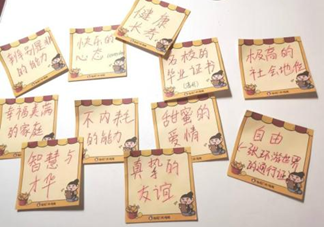 健康
长寿
快乐的
心态
的能力
名校的
毕业证书
极高的
社会地位
幸福美满
的家庭
不内耗
的能力
甜蜜的
爱情
自由
一张环游世界
的通行证
智慧与
才华
真挚的
友谊